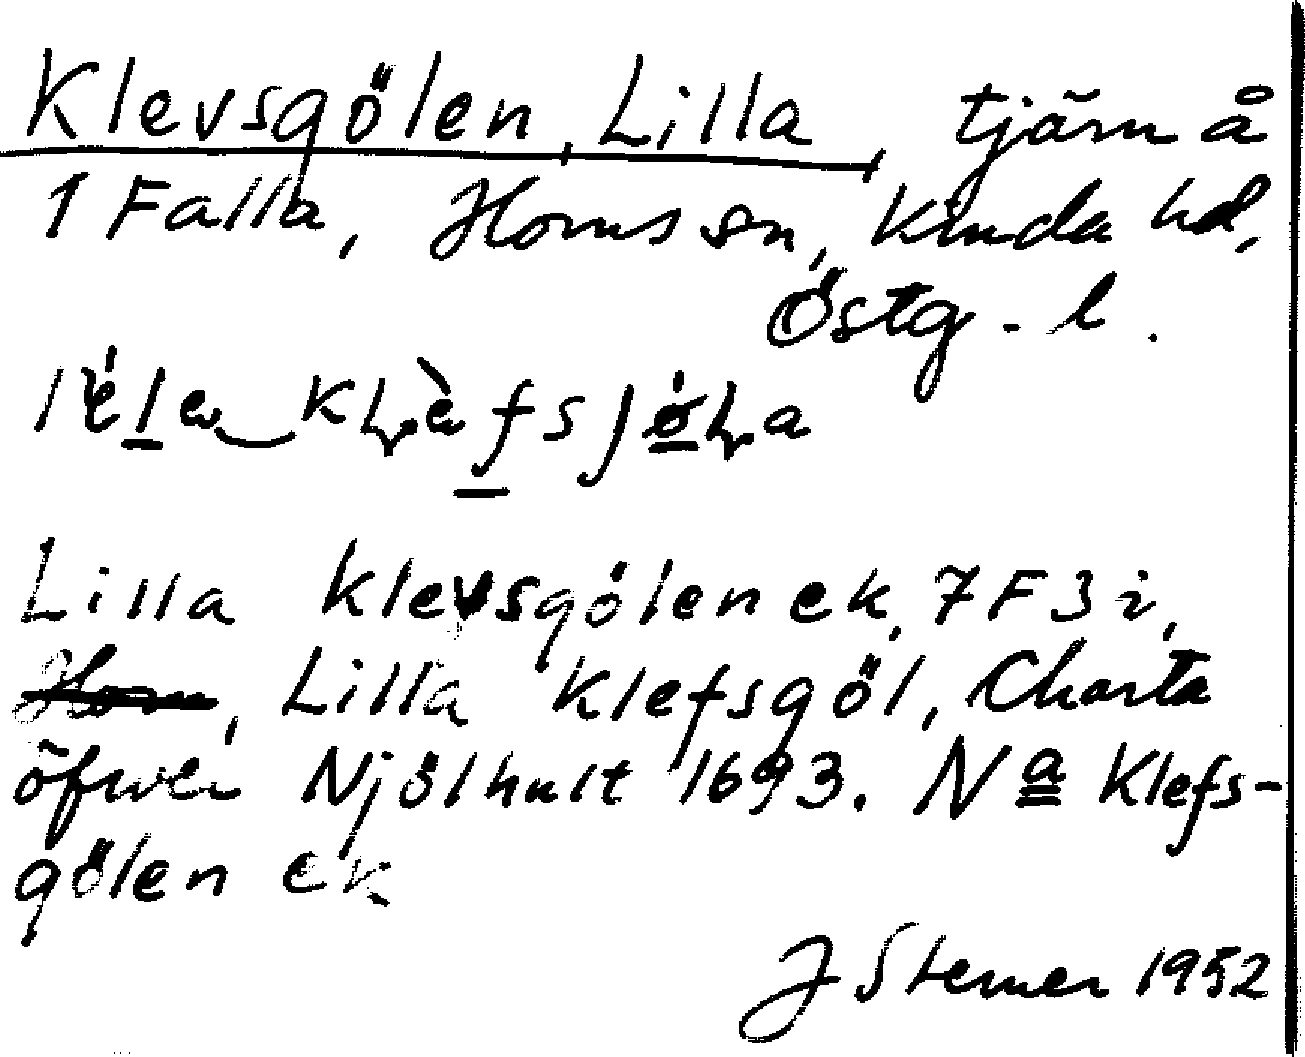 Klevsgölen, Lilla, tjärn å
1 Falla, Horns sn, Kinda hd,
Östg.-l.
Lilla Klevsgölen ek, 7F3i,
Lilla Klefsgöl, Charta
öfwer Njölhult 1693. Na Klefs-
gölen ek
J Sterner 1952